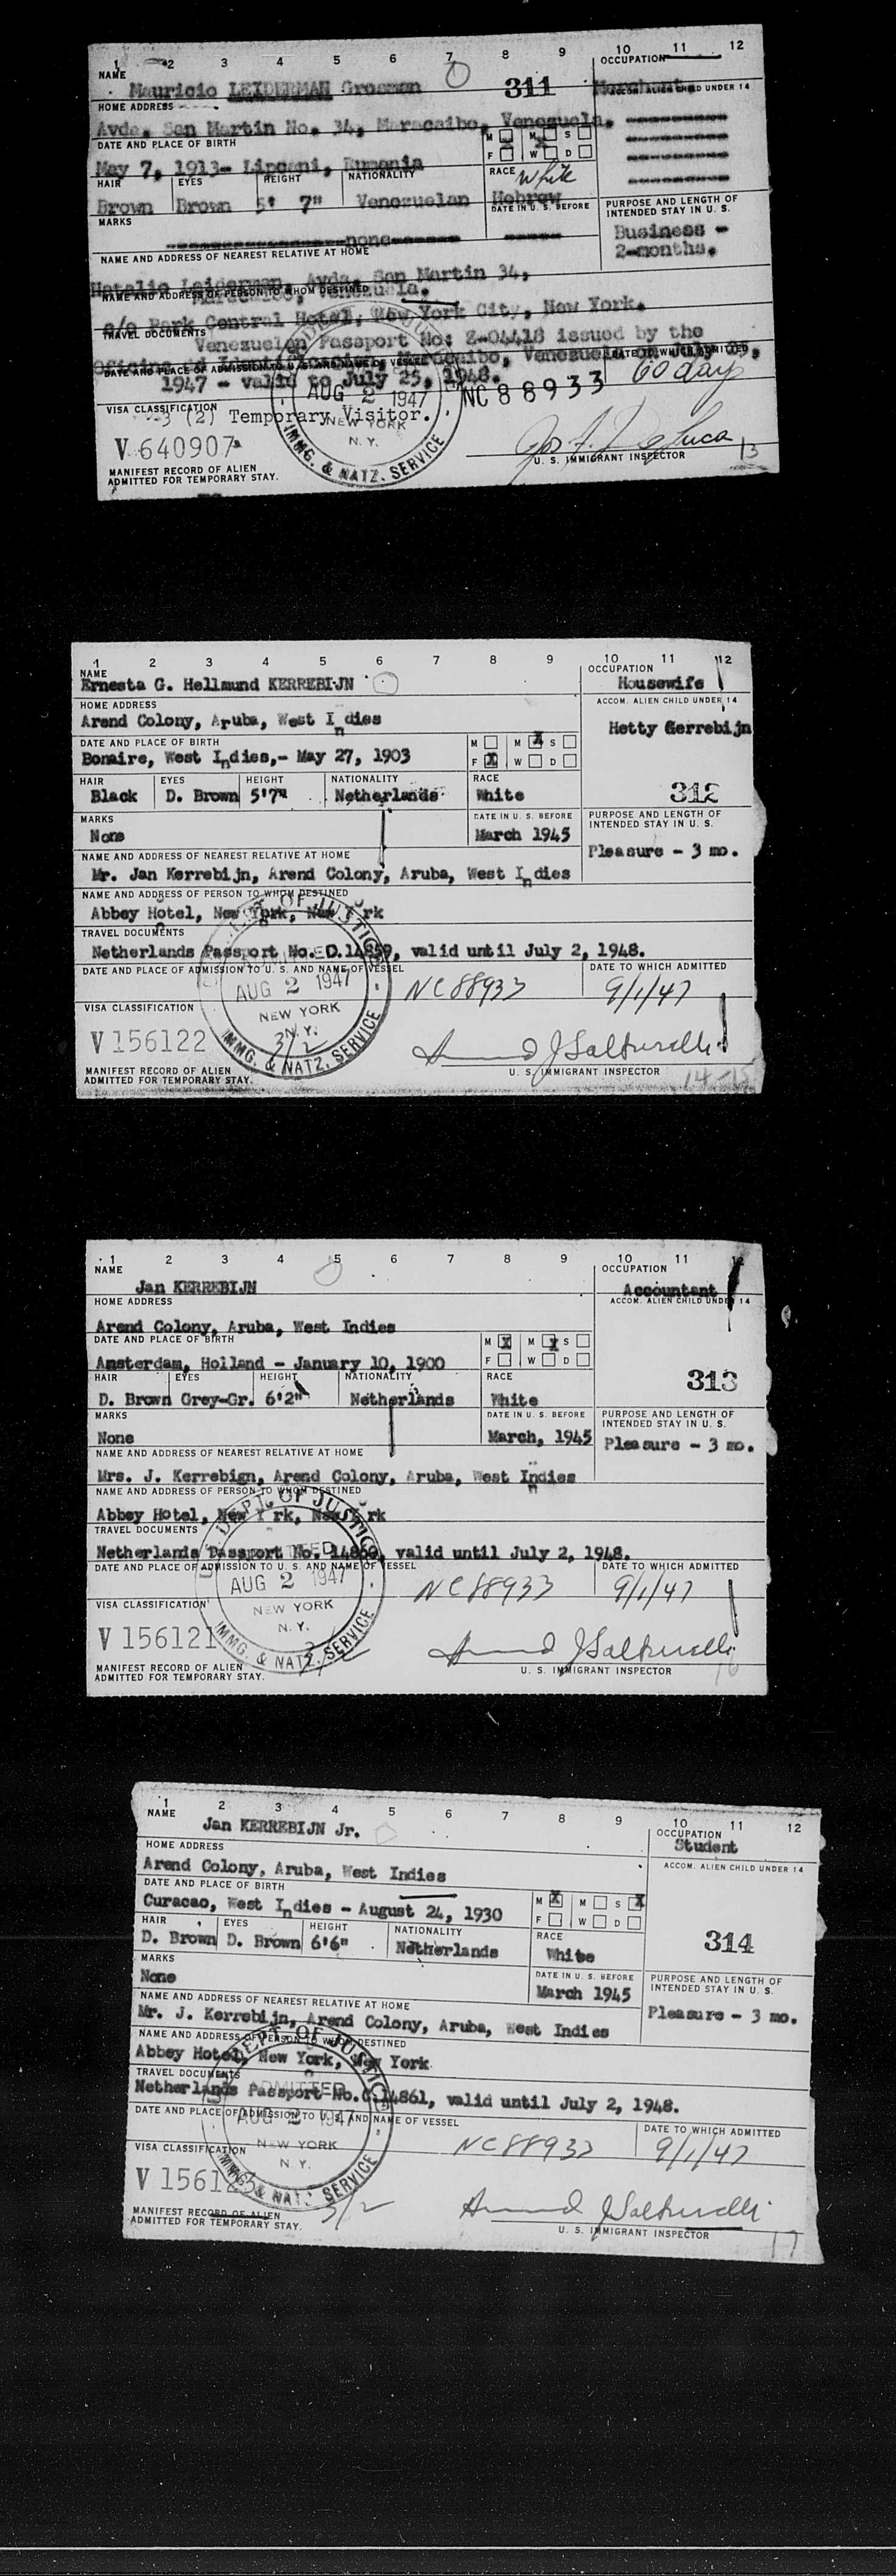 1 2 3 4 5 6 7 8 9 10 11 12
NAME OCCUPATION
Mauricio LEIDERMAN Grosman 311 Merchant
HOME ADDRESS ACCOM. ALIEN CHILD UNDER 14
Avda. San Martin No. 34, Maracaibo, Venezuela.
DATE AND PLACE OF BIRTH M M X S
May 7, 1913- Lipcani, Rumania F W D
HAIR EYES HEIGHT NATIONALITY RACE White
Brown Brown 5' 7" Venezuelan Hebrew
MARKS DATE IN U. S. BEFORE PURPOSE AND LENGTH OF INTENDED STAY IN U. S.
none Business - 2-months.
NAME AND ADDRESS OF NEAREST RELATIVE AT HOME
Natalia Leiderman, Avda. San Martin 34,
Maracaibo, Venezuela.
NAME AND ADDRESS OF PERSON TO WHOM DESTINED
c/o Park Central Hotel, New York City, New York.
TRAVEL DOCUMENTS
Venezuelan Passport No: 2-04418 issued by the
Maracaibo, Venezuela
DATE AND PLACE OF ADMISSION TO U. S. AND NAME OF VESSEL DATE TO WHICH ADMITTED
1947 - valid to July 25, 1948. 60 day
AUG 2 1947 NC 88933
VISA CLASSIFICATION
3 (2) Temporary Visitor.
NEW YORK N. Y.
IMMG. & NATZ. SERVICE
V 640907
U. S. IMMIGRANT INSPECTOR 13
MANIFEST RECORD OF ALIEN
ADMITTED FOR TEMPORARY STAY.
1 2 3 4 5 6 7 8 9 10 11 12
NAME OCCUPATION
Ernesta G. Hellmund KERREBIJN Housewife
HOME ADDRESS ACCOM. ALIEN CHILD UNDER 14
Arend Colony, Aruba, West Indies Hetty Gerrebijn
DATE AND PLACE OF BIRTH M M X S
Bonaire, West Indies,- May 27, 1903 F X W D
HAIR EYES HEIGHT NATIONALITY RACE
Black D. Brown 5'7" Netherlands White 312
MARKS DATE IN U. S. BEFORE PURPOSE AND LENGTH OF INTENDED STAY IN U. S.
None March 1945 Pleasure - 3 mo.
NAME AND ADDRESS OF NEAREST RELATIVE AT HOME
Mr. Jan Kerrebijn, Arend Colony, Aruba, West Indies
NAME AND ADDRESS OF PERSON TO WHOM DESTINED
Abbey Hotel, New York, New York
TRAVEL DOCUMENTS
Netherlands Passport No. D.14859, valid until July 2, 1948.
DATE AND PLACE OF ADMISSION TO U. S. AND NAME OF VESSEL DATE TO WHICH ADMITTED
AUG 2 1947 NC 88933 9/1/47
VISA CLASSIFICATION NEW YORK N. Y.
V 156122 3/2
IMMG. & NATZ. SERVICE
MANIFEST RECORD OF ALIEN U. S. IMMIGRANT INSPECTOR
ADMITTED FOR TEMPORARY STAY. 14-15
1 2 3 4 5 6 7 8 9 10 11 12
NAME OCCUPATION
Jan KERREBIJN Accountant
HOME ADDRESS ACCOM. ALIEN CHILD UNDER 14
Arend Colony, Aruba, West Indies
DATE AND PLACE OF BIRTH M X M X S
Amsterdam, Holland - January 10, 1900 F W D
HAIR EYES HEIGHT NATIONALITY RACE 313
D. Brown Grey-Gr. 6'2" Netherlands White
MARKS DATE IN U. S. BEFORE PURPOSE AND LENGTH OF INTENDED STAY IN U. S.
None March, 1945 Pleasure - 3 mo.
NAME AND ADDRESS OF NEAREST RELATIVE AT HOME
Mrs. J. Kerrebign, Arend Colony, Aruba, West Indies
NAME AND ADDRESS OF PERSON TO WHOM DESTINED
Abbey Hotel, New York, New York
TRAVEL DOCUMENTS
Netherlands Passport No. 14860, valid until July 2, 1948.
DATE AND PLACE OF ADMISSION TO U. S. AND NAME OF VESSEL DATE TO WHICH ADMITTED
AUG 2 1947 NC 88933 9/1/47
VISA CLASSIFICATION NEW YORK N. Y.
V 156121
IMMG. & NATZ. SERVICE
MANIFEST RECORD OF ALIEN U. S. IMMIGRANT INSPECTOR 16
ADMITTED FOR TEMPORARY STAY.
1 2 3 4 5 6 7 8 9 10 11 12
NAME OCCUPATION
Jan KERREBIJN Jr. Student
HOME ADDRESS ACCOM. ALIEN CHILD UNDER 14
Arend Colony, Aruba, West Indies
DATE AND PLACE OF BIRTH M X M S X
Curacao, West Indies - August 24, 1930 F W D
HAIR EYES HEIGHT NATIONALITY RACE 314
D. Brown D. Brown 6'6" Netherlands White
MARKS DATE IN U. S. BEFORE PURPOSE AND LENGTH OF INTENDED STAY IN U. S.
None March 1945 Pleasure - 3 mo.
NAME AND ADDRESS OF NEAREST RELATIVE AT HOME
Mr. J. Kerrebijn, Arend Colony, Aruba, West Indies
NAME AND ADDRESS OF PERSON TO WHOM DESTINED
Abbey Hotel, New York, New York
TRAVEL DOCUMENTS
Netherlands Passport No. C.14861, valid until July 2, 1948.
DATE AND PLACE OF ADMISSION TO U. S. AND NAME OF VESSEL DATE TO WHICH ADMITTED
AUG 2 1947 NC 88933 9/1/47
VISA CLASSIFICATION NEW YORK N. Y.
IMMG. & NATZ. SERVICE
3/2
MANIFEST RECORD OF ALIEN U. S. IMMIGRANT INSPECTOR 17
ADMITTED FOR TEMPORARY STAY.